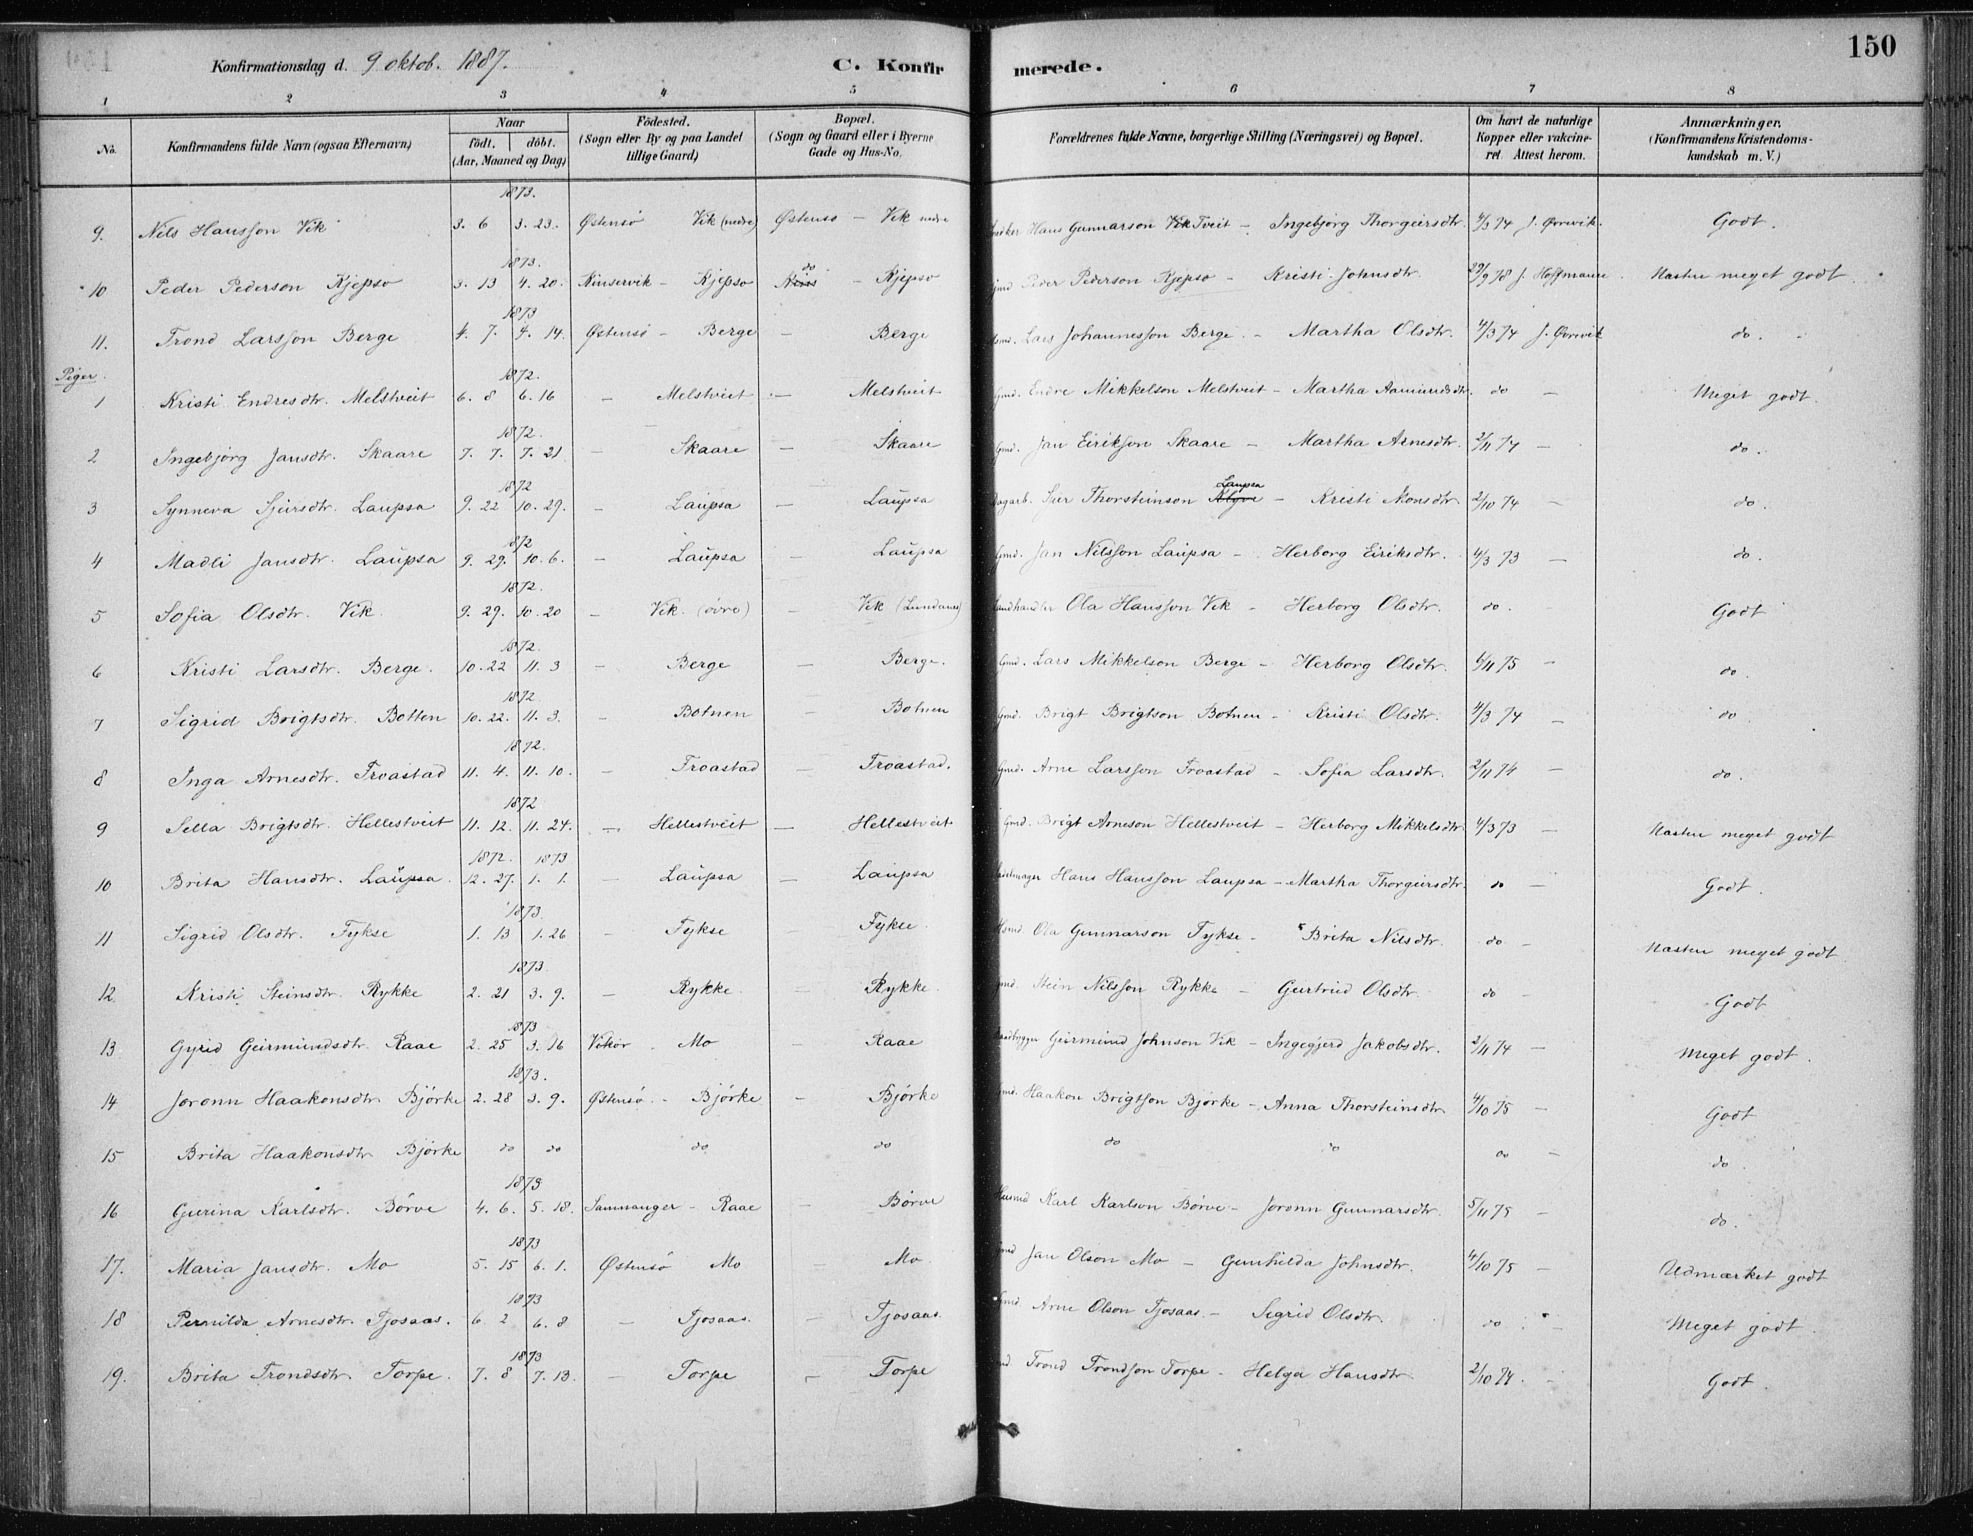 150
Konfirmationsdag d. 9 oktob. 1887. C. Konfirmerede.
1 2 3 4 5 6 7 8
No. Konfirmandens fulde Navn (ogsaa Efternavn) Naar födt. döbt. (Aar, Maaned og Dag) Födested. (Sogn eller By og paa Landet tillige Gaard) Bopæl. (Sogn og Gaard eller i Byerne Gade og Hus-No. Forældrenes fulde Navne, borgerlige Stilling (Næringsvei) og Bopæl. Om havt de naturlige Kopper eller vakcineret Attest herom. Anmærkninger. (Konfirmandens Kristendomskundskab m. V.)
1873.
9. Nils Hansson Vik 3. 6 3. 23. Østensö Vik (nedre) Østensö – Vik nedre Hans Gunnarson Vik Tveit – Ingebjörg Thorgeirsdtr. 4/3 74 J. Øvrevik. Godt.
1873.
10 Peder Pederson Kjepso 3. 13 4. 20. Kinservik – Kjepso do – Kjepso Gmd Peder Pederson Kjepso – Kristi Johnsdtr. 29/9 78 J. Hoffmann Næsten meget godt
1873
11. Trond Larsson Berge 4. 7. 4. 14. Østensö – Berge – Berge Gmd. Lars Johannesson Berge. – Martha Olsdtr. 4/3 74 J. Øvrevik do.
Piger.
1872.
1 Kristi Endresdtr. Melstveit 6. 8 6. 16 – Melstveit – Melstveit Gmd. Endre Mikkelson Melstveit – Martha Aamundsdtr. do – Meget godt.
1872.
2 Ingebjörg Jansdtr. Skaare 7. 7. 7. 21 – Skaare – Skaare Gmd. Jan Eirikson Skaare – Martha Arnesdtr. 2/11 74 – do.
1872
3 Synneva Sjursdtr. Laupsa 9. 22 10. 29. – Laupsa – Laupsa Dagarb. Sjur Thorsteinson Laupsa – Kristi Monsdtr 2/10 74 – do.
1872
4 Madli Jansdtr. Laupsa 9. 29. 10. 6. – Laupsa – Laupsa Gmd. Jan Nilsson Laupsa – Herborg Eiriksdtr. 4/3 73 – do.
1872.
5 Sofia Olsdtr. Vik 9. 29. 10. 20 – Vik. (övre) – Vik (Lundanes) Landhandler Ola Hansson Vik – Herborg Olsdtr. do. – Godt
1872.
6 Kristi Larsdtr. Berge. 10. 22 11. 3 – Berge – Berge. Gmd. Lars Mikkelson Berge – Herborg Olsdtr. 4/11 75 – do.
1872
7 Sigrid Brigtsdtr. Botten 10. 22. 11. 3. – Botnen – Botnen Gmd. Brigt Brigtson Botnen – Kristi Olsdtr. 4/3 74 – do.
1872.
8 Inga Arnesdtr. Troastad 11. 4. 11. 10. – Troastad – Troastad. Gmd. Arne Larsson Troastad – Sofia Larsdtr. 2/11 74 – do.
1872
9 Sella Brigtsdtr. Hellestveit 11. 12. 11. 24. – Hellestveit – Hellestveit Gmd. Brigt Arneson Hellestveit – Herborg Mikkelsdtr 4/3 73 – Næsten meget godt
1872. 1873
10 Brita Hansdtr. Laupsa. 12. 27. 1. 1. – Laupsa – Laupsa Hans Hansson Laupsa – Martha Thorgeirsdtr. do – Godt.
1873.
11 Sigrid Olsdtr. Fykse 1. 13 1. 26 – Fykse – Fykse. Hsmd. Ola Gunnarson Fykse – Brita Nilsdtr. do – Næsten meget godt
1873.
12. Kristi Steinsdtr. Rykke 2. 21 3. 9. – Rykke – Rykke. Gmd. Stein Nilsson Rykke – Gurtrud Olsdtr. do – Godt
1873
13. Gyrid Geirmundsdtr. Raae 2. 25 3. 16 Vikör – Mo – Raae Geirmund Johnson Vik – Ingegjerd Jakobsdtr. 2/11 74 – Meget godt.
1873.
14 Joronn Haakonsdtr Bjórke 2. 28 3. 9. Østensö – Bjórke – Bjórke Gmd. Haakon Brigtson Bjórke – Anna Thorsteinsdtr 4/10 75 – Godt
15 Brita Haakonsdtr Bjórke do do do do do do do – do.
1873
16 Gurina Karlsdtr. Börve 4. 6. 5. 18. Samnanger – Raae – Börve Husmd Karl Karlson Börve – Joronn Gunnarsdtr. 5/11 75 – do.
1873
17. Maria Jansdtr. Mo 5. 15 6. 1. Østensö Mo Mo Gmd Jan Olson Mo – Gunhilda Johnsdtr. 4/10 75 – Udmærket godt
1873
18 Pernilda Arnesdtr. Tjosaas. 6. 2 6. 8 – Tjosaas. – Tjosaas. Gmd. Arne Olson Tjosaas – Sigrid Olsdtr. do – Meget godt.
1873
19. Brita Trondsdtr. Torpe. 7. 8 7. 13. – Torpe – Torpe Trond Trondson Torpe – Helga Hansdtr. 2/10 74. – Godt.